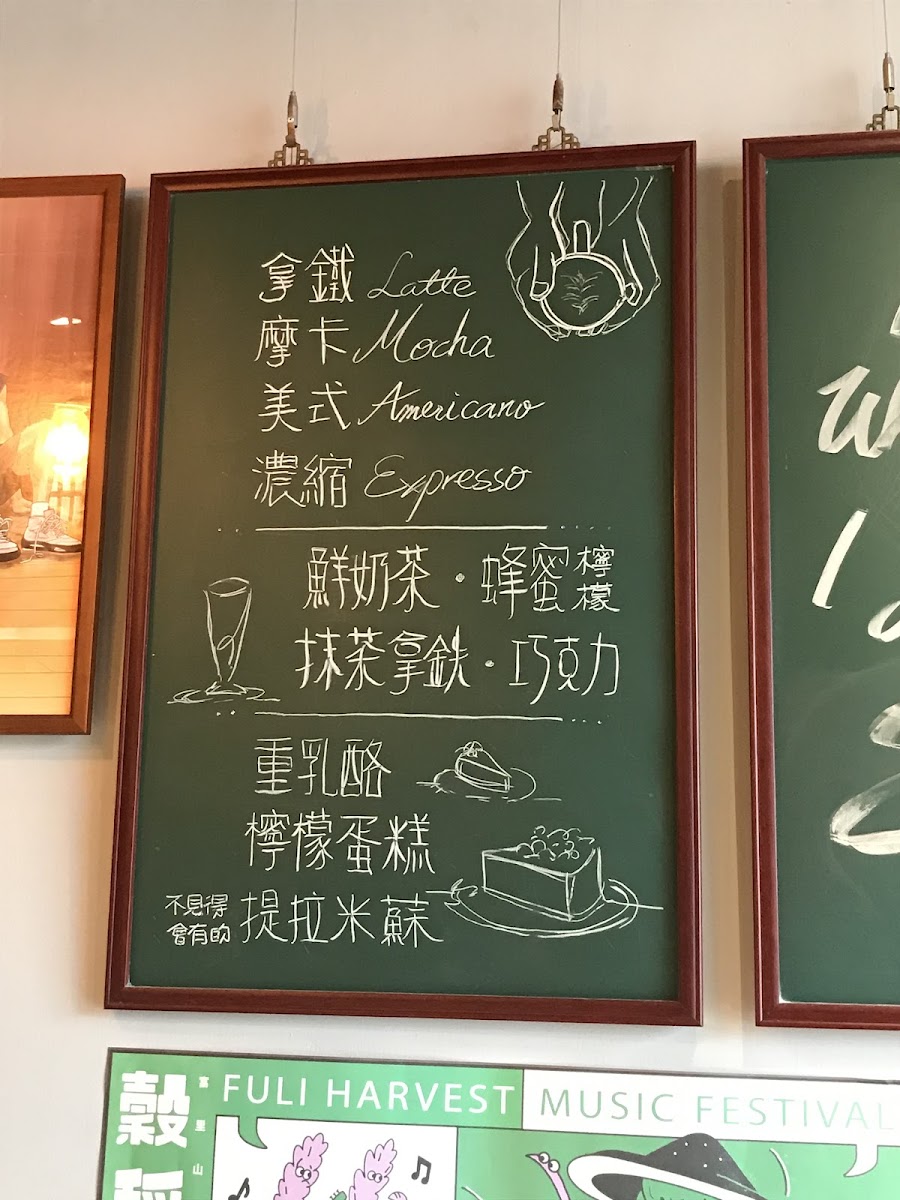 拿鐵 Latte
摩卡 Mocha
美式 Americano
濃縮 Expresso
鮮奶茶・蜂蜜檸檬
抹茶拿鉄・巧克力
重乳酪
檸檬蛋糕
不見得會有的 提拉米蘇
FULI HARVEST MUSIC FESTIVAL
富里山
穀